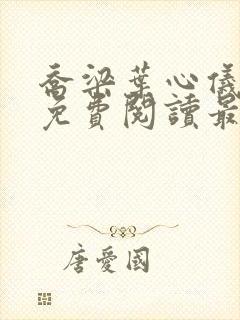 喬梁葉心儀
免費閱讀最
唐愛國